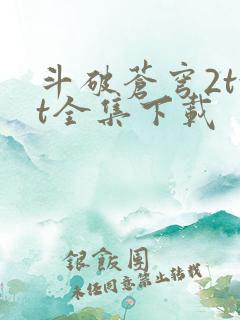 斗破蒼穹2t
t全集下載
銀飯團
未任同意禁止转载